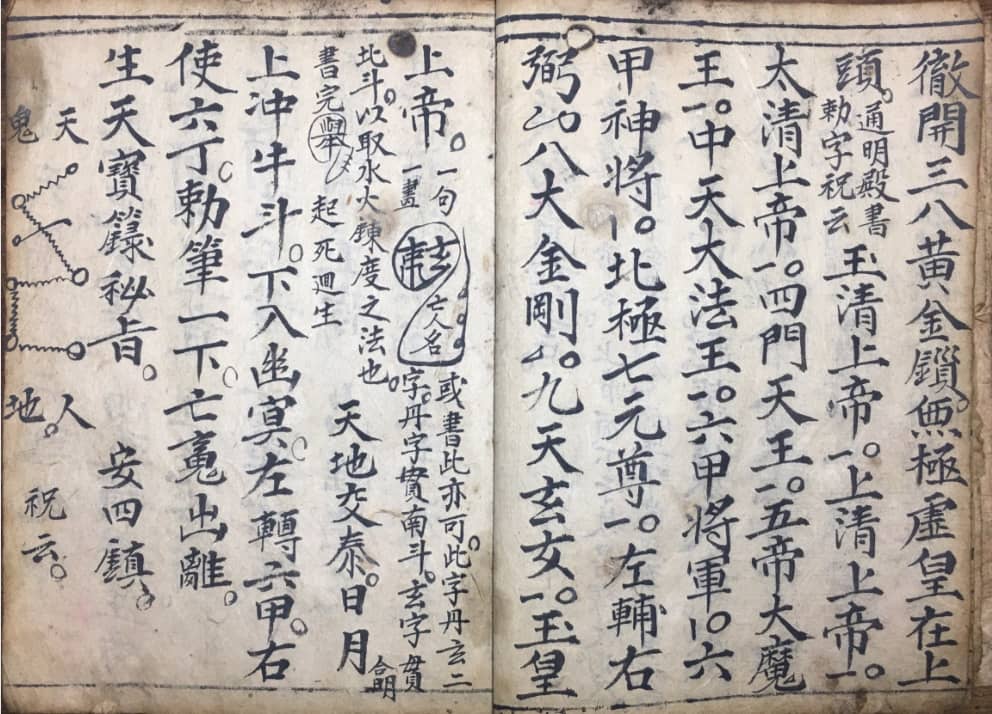 徹開三八黃金鎖。無極虛皇在上
頭。通明殿書
勅字祝云
玉清上帝。一上清上帝。一
太清上帝。一四門天王。一五帝大魔
王。一中天大法王。一六甲將軍。一六
甲神將。一北極七元尊。一左輔右
弼。八大金剛。九天玄女。一玉皇
上帝。一句
一畫
亡人名
或書此亦可。此字丹玄二
字。丹字貫南斗。玄字貫
北斗。以取水火鍊度之法也。
書完舉
起死迴生
天地交泰。日月
合明
上沖牛斗。下入幽冥。左轉六甲。右
使六丁。勅筆一下。亡魂出離。
生天寶籙秘旨。
安四鎮。
天
鬼
人
地。
祝云。